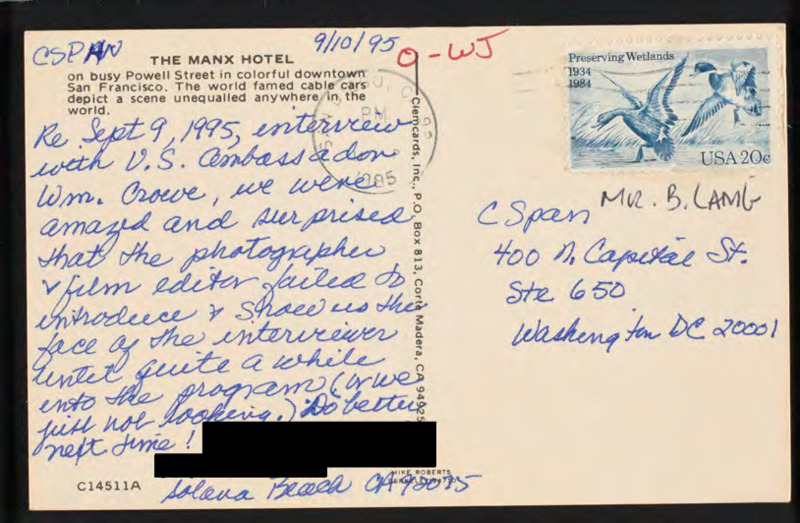 CSPAN
9/10/95
O-WJ
THE MANX HOTEL
on busy Powell Street in colorful downtown
San Francisco. The world famed cable cars
depict a scene unequalled anywhere in the
world.
Re Sept 9, 1995, interview
with U.S. Ambassador
Wm. Crowe, we were
amazed and surprised
that the photographer
& film editor failed to
introduce & show us the
face of the interviewer
until quite a while
into the program (or we
just not looking.) Do better
next time!
Solana Beach CA 92075
C14511A
Clemcards, Inc., P.O. Box 813, Corte Madera, CA 94925
MIKE ROBERTS
PM
Preserving Wetlands
1934
1984
USA 20c
MR. B. LAMB
CSpan
400 N. Capital St.
Ste 650
Washington DC 20001